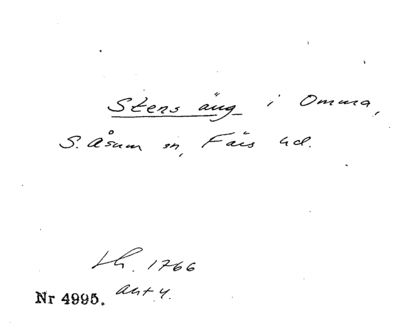 Stens äng i Omma,
S. Åsum sn, Färs hd.
Lh. 1766
akt 4.
Nr 4995.